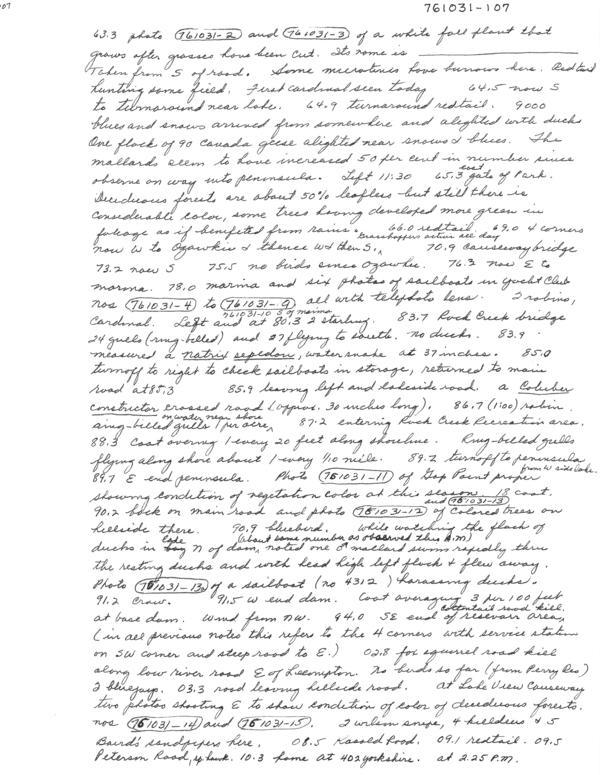 07
761031-107
63.3 photo 761031-2 and 761031-3 of a white fall plant that
grows after grasses have been cut. Its name is
Taken from S of road. Some microtines have burrows here. Redtail
hunting same field. First cardinal seen today 64.5 now S
to turnaround near lake. 64.9 turnaround redtail. 9000
blues and snows arrived from somewhere and alighted with ducks
One flock of 90 Canada geese alighted near snows & blues. The
mallards seem to have increased 50 per cent in number since
observe on way into peninsula. Left 11:30 65.3 east gate of Park.
Deciduous forests are about 50% leafless but still there is
considerable color, some trees having developed more green in
foliage as if benefited from rains. 66.0 redtail 69.0 4 corners
Grasshoppers active all day
now W to Ozawkie & thence W & then S. 70.9 causeway bridge
73.2 now S 75.5 no birds since Ozawkie. 76.3 now E to
marina. 78.0 marina and six photos of sailboats in Yacht Club
nos 761031-4 to 761031-9 all with telephoto lens. 2 robins,
761031-10 S of marina
Cardinal. Left and at 80.3 2 starling. 83.7 Rock Creek bridge
24 gulls (ring-billed) and 27 flying to south. no ducks. 83.9
measured a Natrix sepedon, water snake at 37 inches. 85.0
turnoff to right to check sailboats in storage, returned to main
road at 85.3 85.9 leaving left and lakeside road. a Coluber
constructor crossed road (approx. 30 inches long). 86.7 (1:00) robin
on water near shore
ring-billed gulls 1 per acre, 87.2 entering Rock Creek Recreation area.
88.3 Coot averag 1 every 20 feet along shoreline. Ring-billed gulls
flying along shore about 1 every 1/10 mile. 89.2 turnoff to peninsula
from W side lake.
89.7 E end peninsula. Photo 761031-11 of Gap Point proper
showing condition of vegetation color at this season. 18 coot.
and 761031-13
90.2 back on main road and photo 761031-12 of colored trees on
hillside there. 90.9 bluebird. While watching the flock of
(about same number as observed this A.M)
ducks in lake N of dam, noted one ♂ mallard swim rapidly thru
the resting ducks and with head high left flock & flew away.
Photo 761031-13a of a sailboat (no 4312) harassing ducks.
91.2 crow. 91.5 W end dam. Coot averaging 3 per 100 feet
cottontail road kill.
at base dam. Wind from NW. 94.0 SE end of reservoir area,
(in all previous notes this refers to the 4 corners with service station
on SW corner and steep road to E.) 02.8 fox squirrel road kill
along low river road E of Lecompton. No birds so far (from Perry Res)
2 bluejays. 03.3 road leaving hillside road. at Lake View Causeway
two photos shooting E to show condition of color of deciduous forests.
nos 761031-14 and 761031-15. 2 wilson snipe, 4 killdeer & 5
Baird's sandpipers here. 08.5 Kasold Road. 09.1 redtail. 09.5
Peterson Road, hawk. 10.3 home at 402 Yorkshire. at 2.25 P.M.